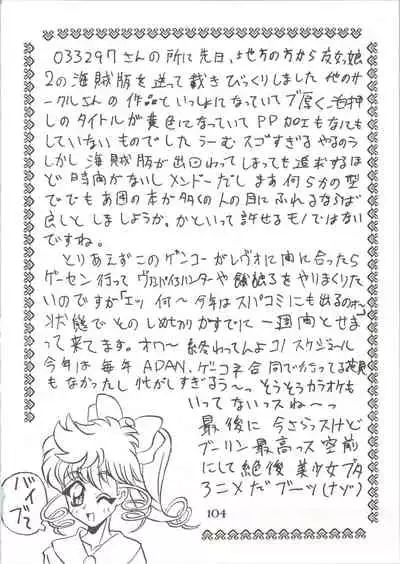 033297さんの所に先日、よせ方の方から友女娘
2の海賊版を送って戴きびっくりしました 他のサ
ークルさんの作品といっしょになっていてブ厚く泊押
しのタイトルが黄色になっていてPP加工もなにも
していないものでした うーむスゴすぎるやるのう
しかし海賊版が出回わってしまっても追求するほ
ど時間がないしメンドーだし まあ何らかの型
ででもあ困の本が多くの人の目にふれるならば
良しとしましょうか、かといって許せるモノではない
ですね。
とりあえずこのゲンコーがレヴォに間に合ったら
ゲーセン行って
をやりまくりた
いのですが「エッ 何〜 今年はスパコミにも出るのォー」
状態でその しめきりがすでに一週間とせま
って来てます。オワ〜 終わってんよコノスケジュール
今年は毎年ADAN、ゲッコネ合同でやってる花見
もなかったし 忙がしすぎるう〜っ そうそうカラオケも
いってないっスね〜っ
最後に今さらっスけど
ブーリン最高っス空前
にして絶後美少女ブタ
ろニメだブーッ(ナゾ)
バイブて
104